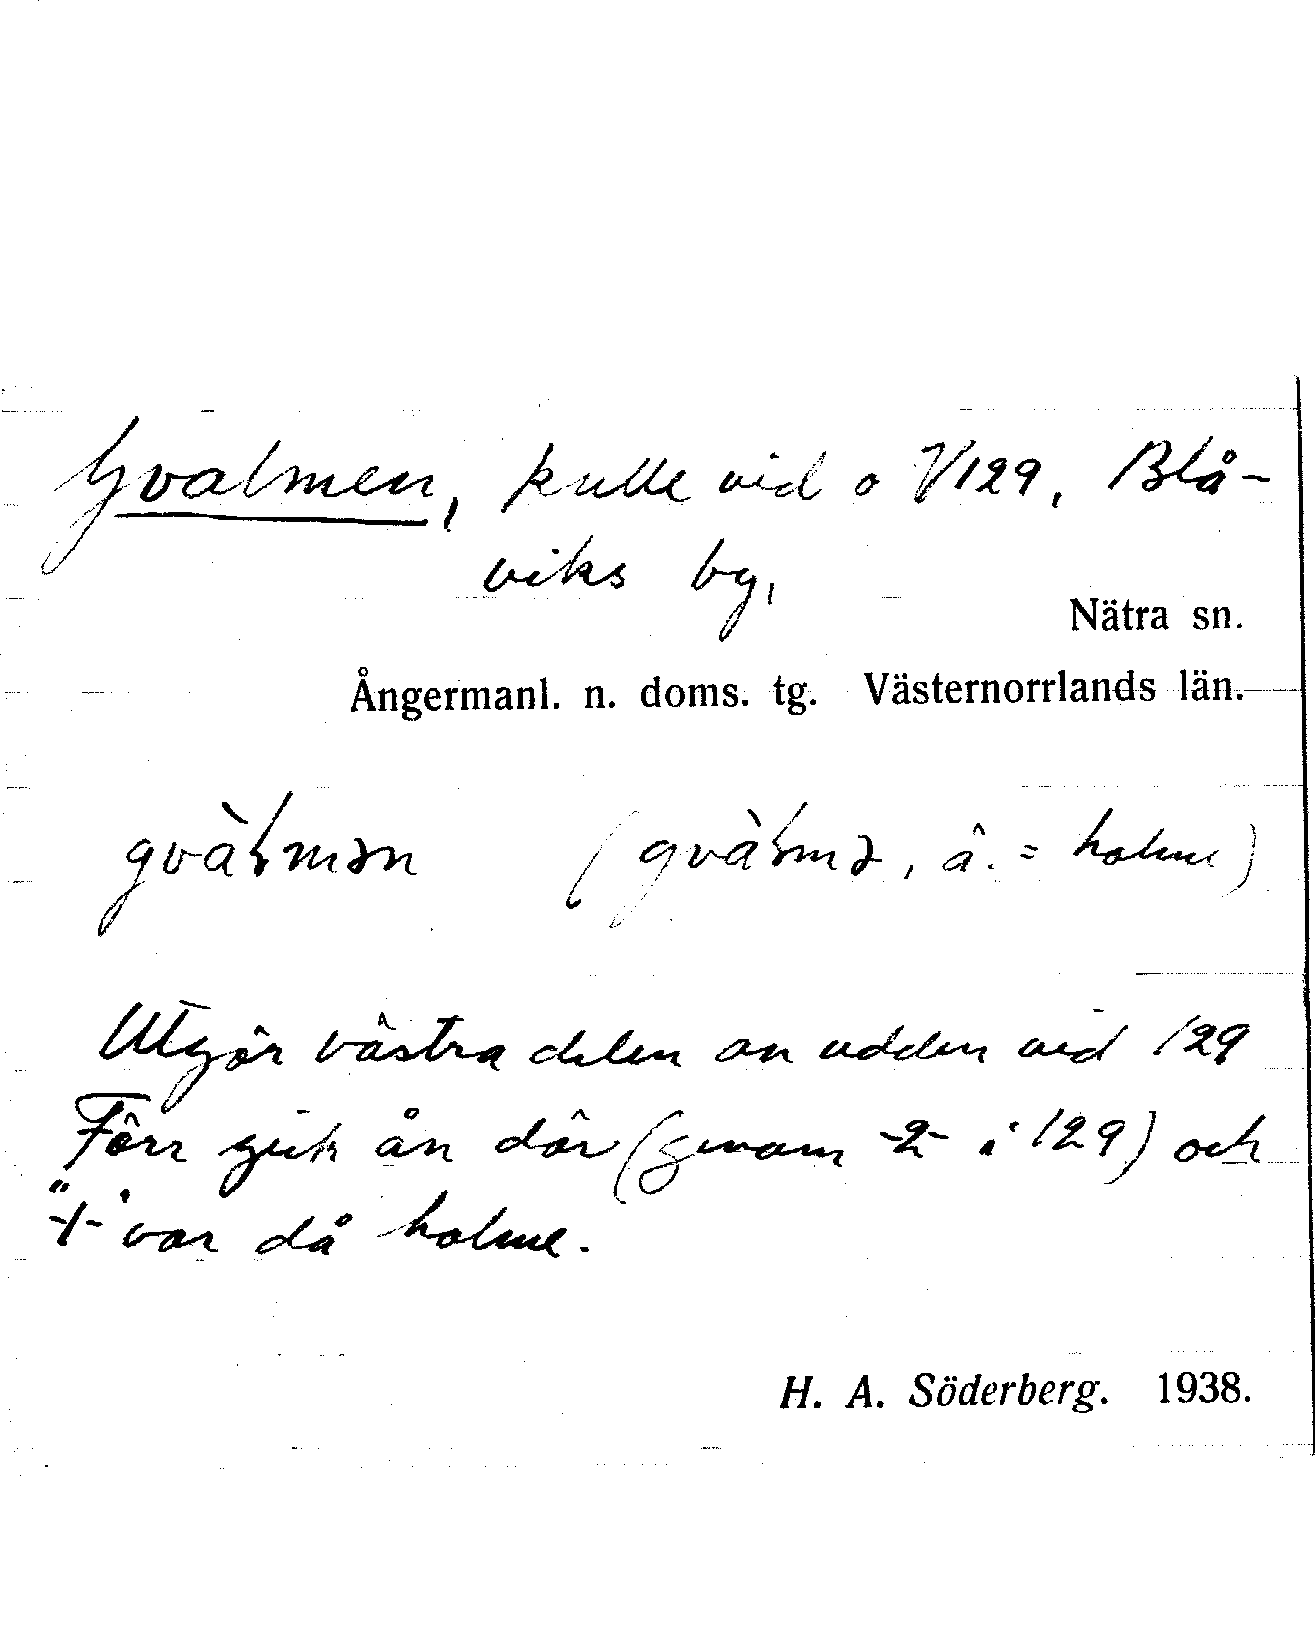 Gvalmen, kulle vid o V129, Blå-
viks by,
Nätra sn.
Ångermanl. n. doms. tg. Västernorrlands län.
gvàłmən (gvàłmə, â. = holme)
Utgör västra delen av udden vid 129
Förr gick ån där (genom -2- i 129) och
"-1-" var då holme.
H. A. Söderberg. 1938.